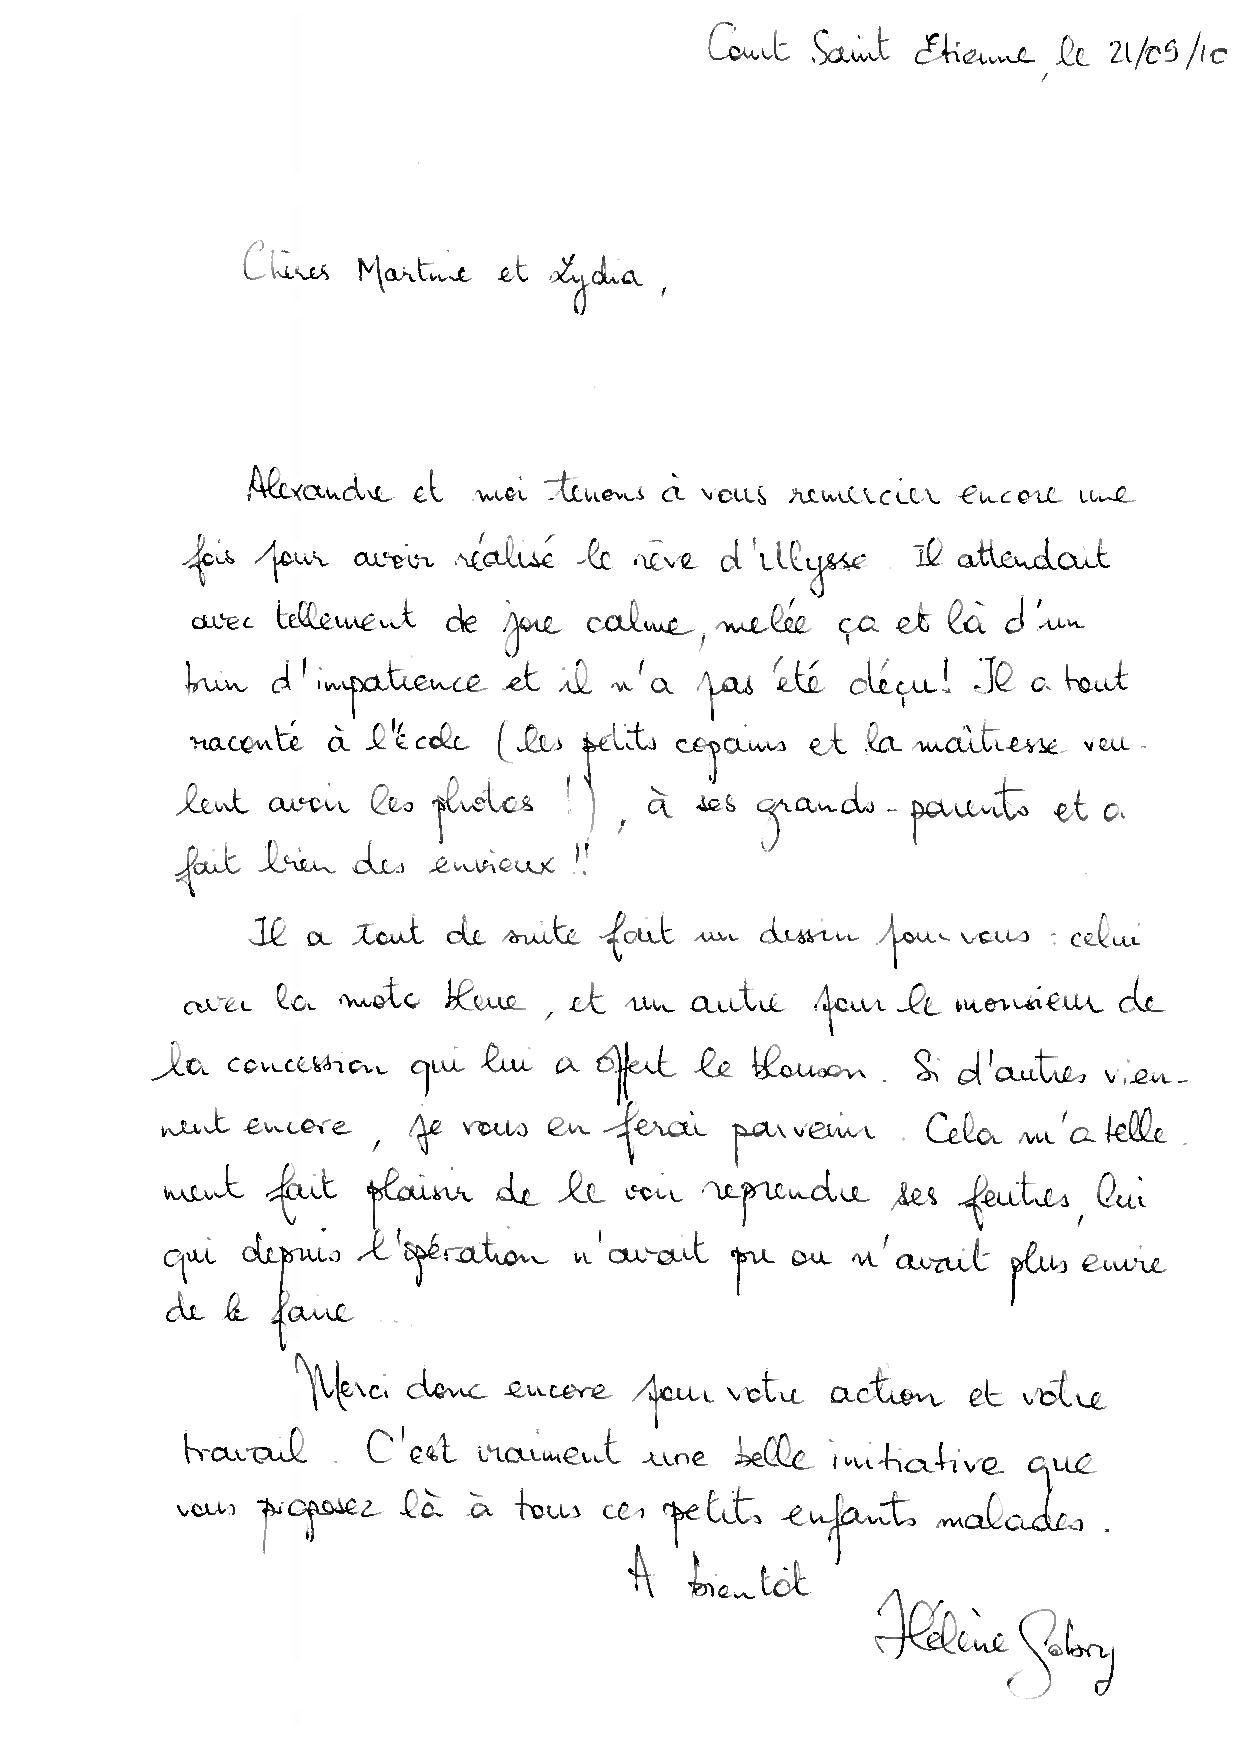 Court Saint Etienne, le 21/09/10
Chères Martine et Lydia,
Alexandre et moi tenons à vous remercier encore une
fois pour avoir réalisé le rêve d'Ulysse. Il attendait
avec tellement de joie calme, melée ça et là d'un
brin d'impatience et il n'a pas été déçu! Il a tout
raconté à l'école (les petits copains et la maîtresse veu-
lent avoir les photos !), à ses grands-parents et a
fait bien des envieux !!
Il a tout de suite fait un dessin pour vous : celui
avec la moto bleue, et un autre pour le monsieur de
la concession qui lui a offert le blouson. Si d'autres vien-
nent encore, je vous en ferai parvenir. Cela m'a telle-
ment fait plaisir de le voir reprendre ses feutres, lui
qui depuis l'opération n'avait pu ou n'avait plus envie
de le faire
Merci donc encore pour votre action et votre
travail. C'est vraiment une belle initiative que
vous proposez là à tous ces petits enfants malades.
A bientôt
Hélène